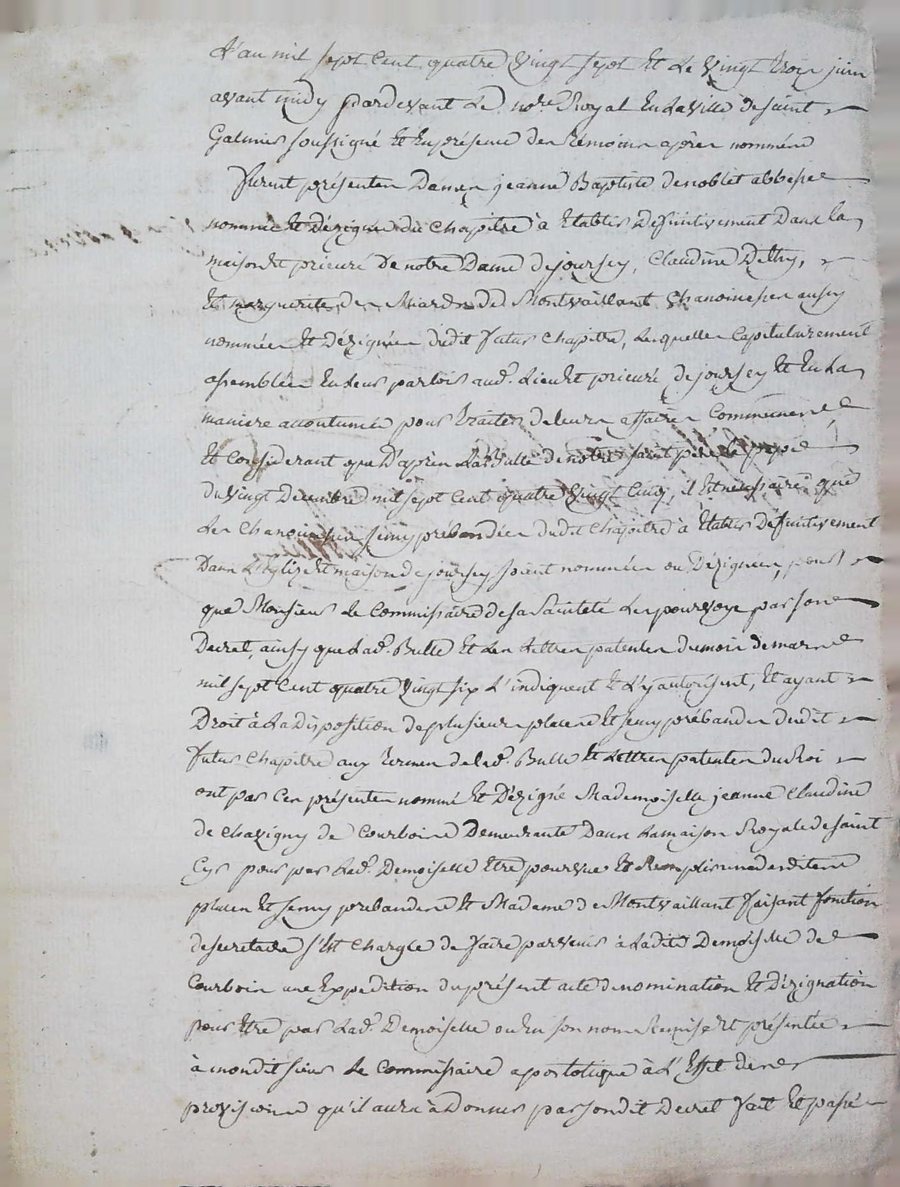 L'an mil sept cent quatre vingt sept et le vingt trois juin
avant midy pardevant le nore Royal en la ville de saint
Galmier soussigné et en présence des témoins après nommés
furent présentes Dames jeanne Baptiste de noblet abbesse
nommée et dézignée du chapitre à établir définitivement dans la
maison et prieuré de notre Dame de joursey, Claudine
et marguerite des Miards de Montvaillant chanoinesses aussy
nommées et dézignées dudit futur chapitre, lesquelles capitulairement
assemblées en leur parloir aud. lieu et prieuré de joursey et en la
maniere accoutumée pour traiter de leurs affaires communes
et considerant que d'après la Bulle de notre saint père le pape
du vingt decembre mil sept cent quatre vingt cinq, il est nécessaire que
les chanoinesses semy prébendées dudit chapitre à établir définitivement
dans l'église et maison de joursey soient nommées ou dézignées, pour
que Monsieur le commissaire de sa sainteté les pourvoye par son
decret, ainsy que lad. Bulle et les lettres patentes du mois de mars
mil sept cent quatre vingt six l'indiquent et l'y autorisent, et ayant
droit à la disposition de plusieurs places et semy prébandes dudit
futur chapitre aux termes de lad. Bulle et lettres patentes du Roi
ont par ces présentes nommé et dézigné Mademoiselle jeanne claudine
de chavigny de courboin demeurante dans la maison Royale de saint
Cyr pour par lad. Demoiselle être pourvue et remplir une desdites
places et semy prébandes et Madame de Montvaillant faisant fonction
de secretaire s'est chargée de faire parvenir à ladite Demoiselle de
Courboin une expedition du présent acte de nomination et dézignation
pour être par lad. Demoiselle ou en son nom remise et présentée
à mondit sieur le commissaire apostolique à l'effet des
provisions qu'il aura à donner par sondit decret fait et passé